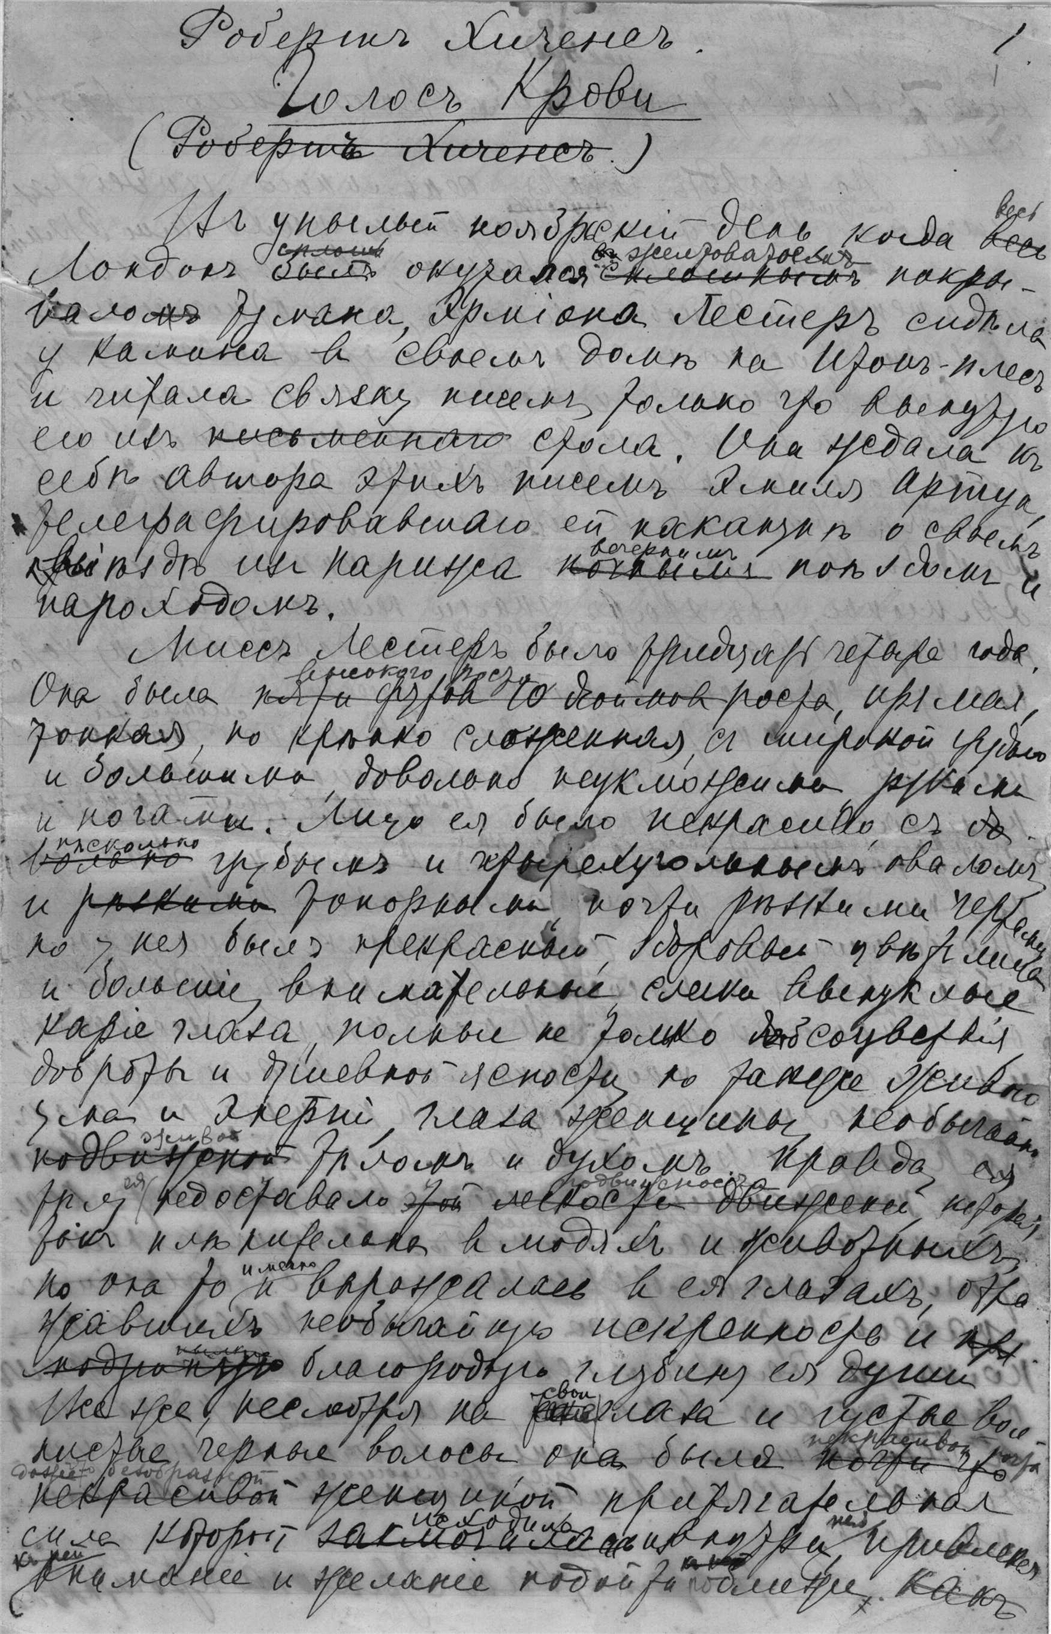 Робертъ Хиченсъ. 1
Голосъ Крови
(Робертъ Хиченсъ.)
Въ унылый ноябрскій день когда весь весь
Лондонъ сплошь былъ окутался въ желтоватое сплошнымъ покры-
валомъ тумана, Эрміона Лестеръ сидѣла
у камина въ своемъ домѣ на Итонъ-плесъ
и читала связку писемъ, только что вынутую
ею изъ письменнаго стола. Она ждала къ
себѣ автора этихъ писемъ Эмиля Артуа,
телеграфировавшаго ей наканунѣ о своемъ
выѣздѣ изъ Парижа вечернимъ ночнымъ поѣздомъ и
пароходомъ.
Миссъ Лестеръ было тридцать четыре года.
Она была высокаго роста пяти футов 10 дюймов роста, прямая,
тонкая, но крѣпко сложенная, съ широкой грудью
и большими, довольно неуклюжими руками
и ногами. Лицо ея было некрасиво, съ до-
вольно нѣсколько грубымъ и четыреугольнымъ оваломъ
и рѣзкими топорными, почти рѣзкими чертами
но у нея былъ прекрасный, здоровый цвѣтъ лица
и большіе, внимательные, слегка выпуклые
каріе глаза, полные не только сочувствія
доброты и душевной ясности, но также живого
ума и энергіи, глаза женщины, необычайно
подвижной живой тѣломъ и духомъ. Правда, ея
тѣлу недоставало той легкости подвижности движеній, которая
такъ плѣнительна въ людяхъ и животныхъ,
но она то именно и выражалась въ ея глазахъ, отра-
жавшихъ необычайную искренность и
благородную глубину ея души
Но же, несмотря на свои глаза и густые вол-
нистые черные волосы она была некрасивой почти что
даже безобразной некрасивой женщиной притягательная
сила которой находила заключалась внутри нея, привлекая
къ ней вниманіе и желаніе подойти поближе, какъ